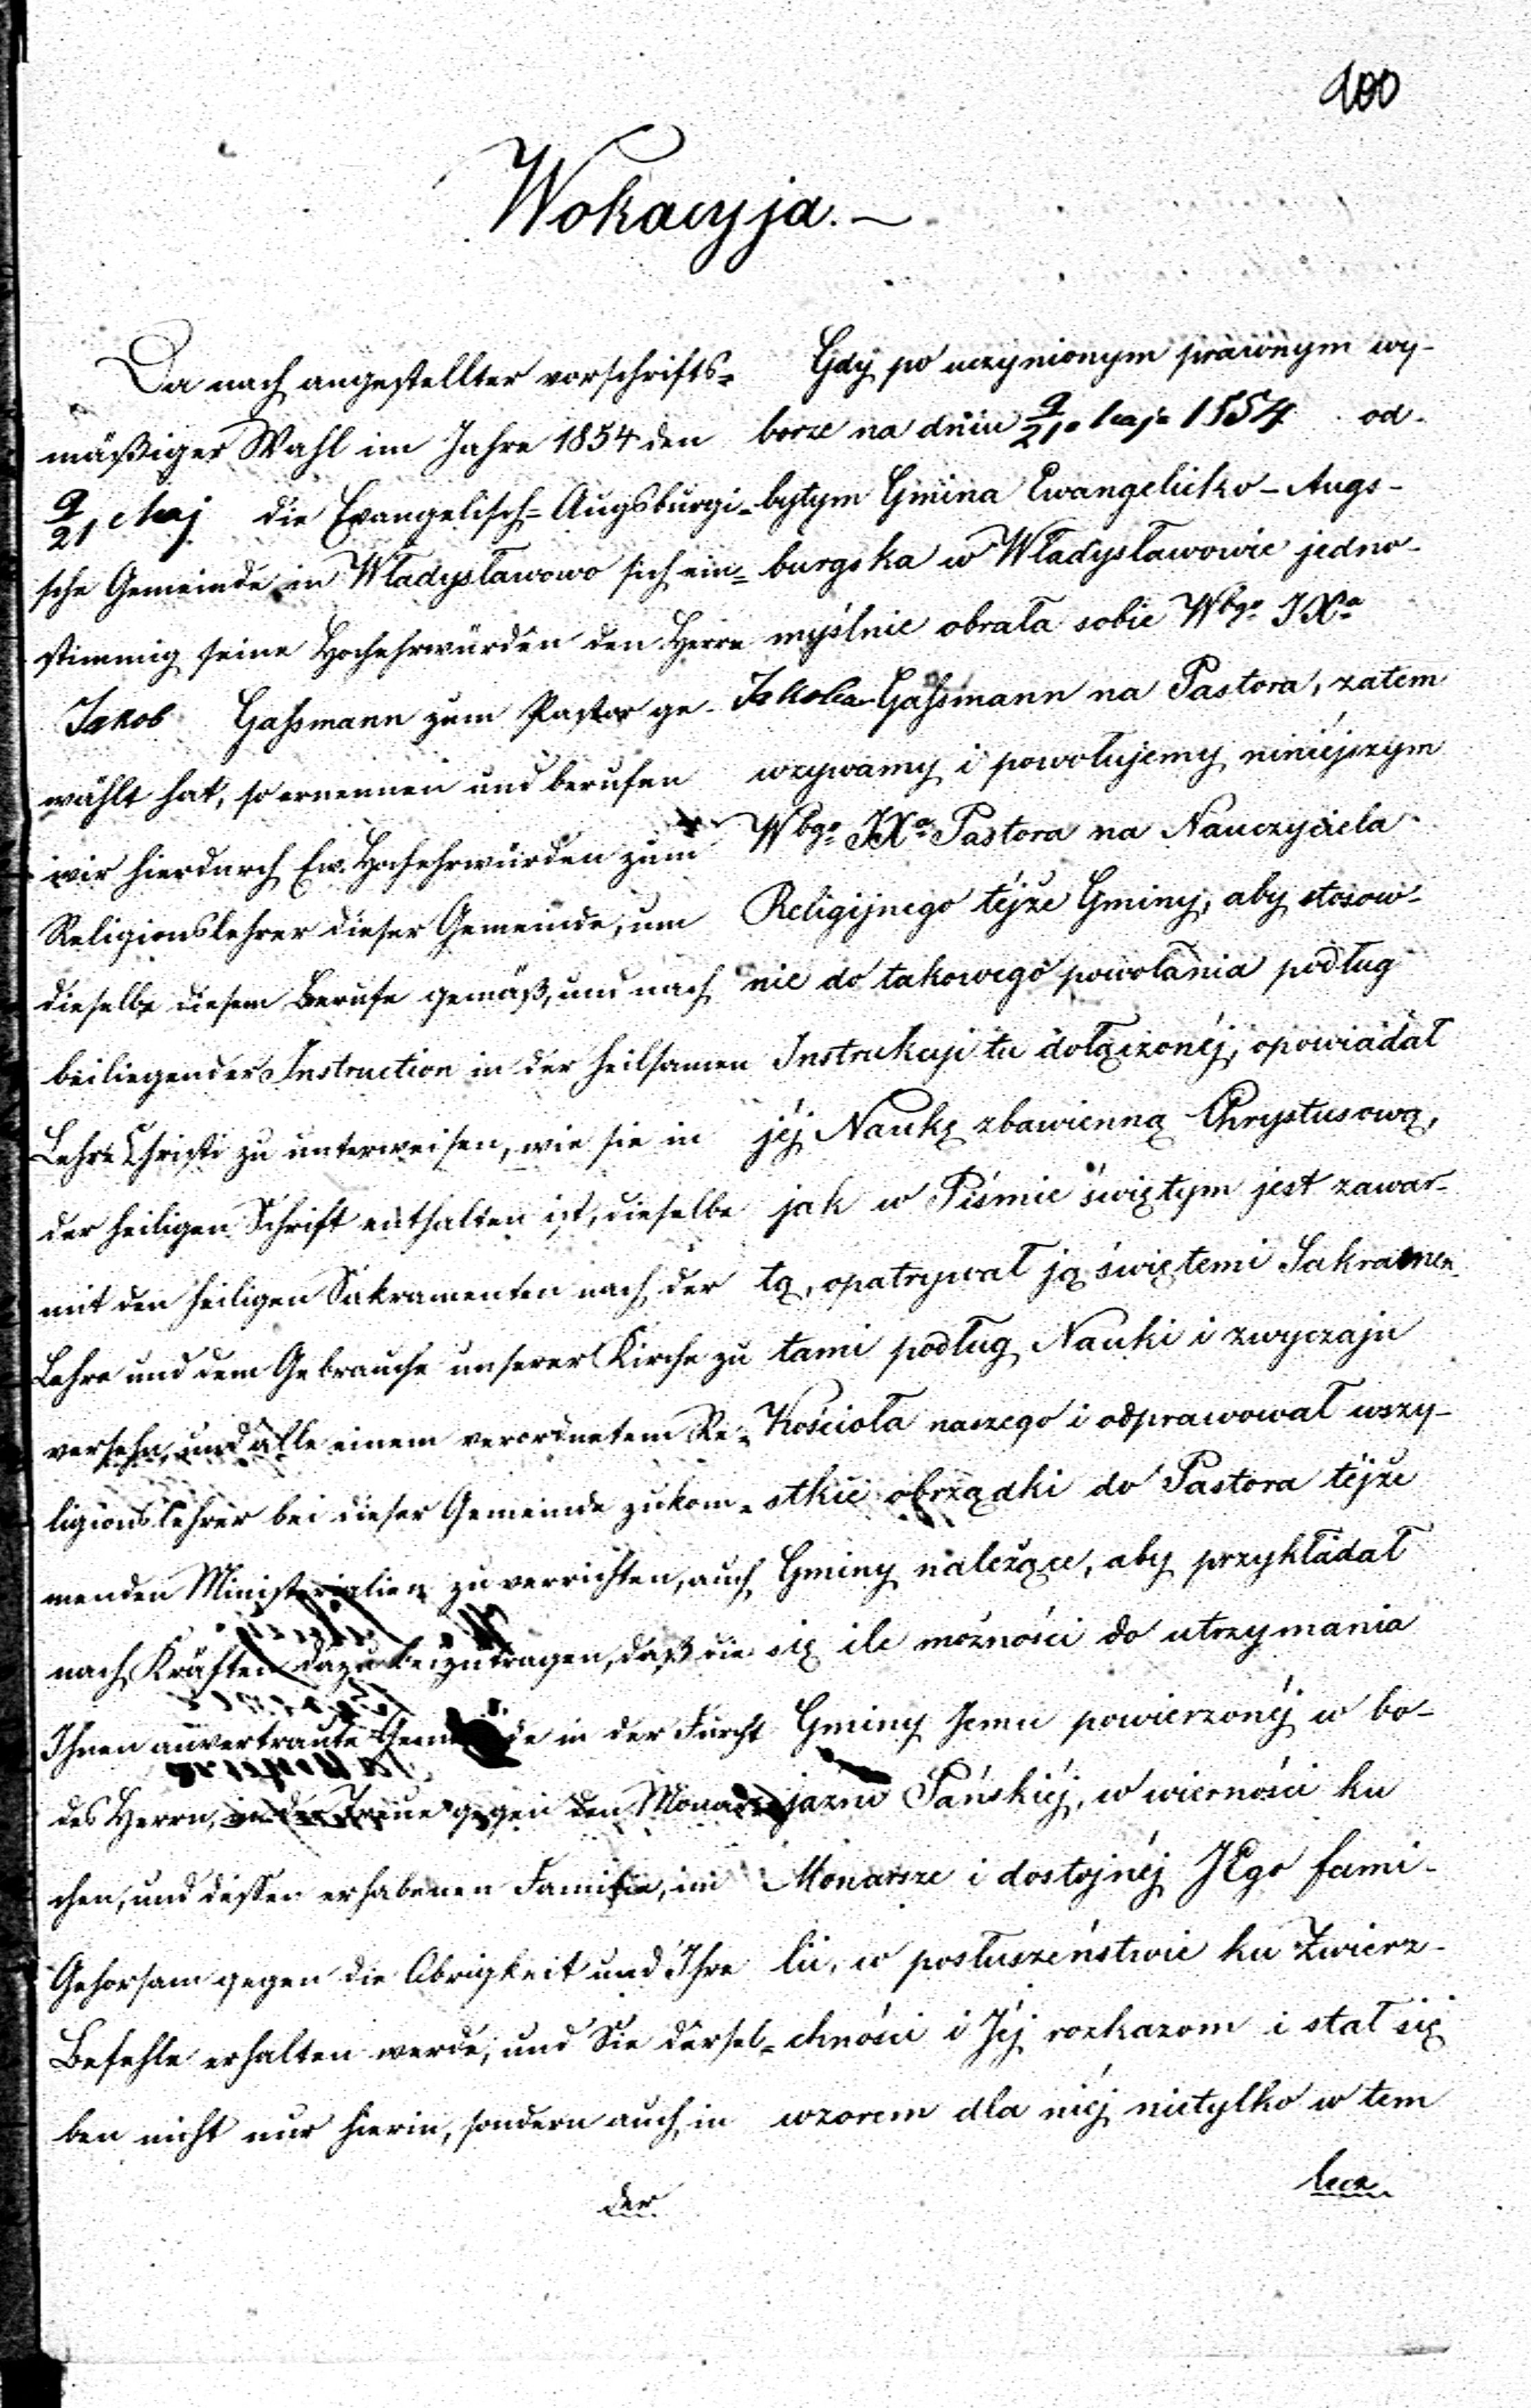 100
Wokacyja.—
Da nach angestellter vorschrifts=
mäßiger Wahl im Jahre 1854 den
9/21 Maj die Evangelisch=Augsburgi=
sche Gemeinde in Władysławowo sich ein=
stimmig seine Hochehrwürden den Herrn
Jakob Gaßmann zum Pastor ge-
wählt hat, so ernennen und berufen
wir hierdurch Ew. Hochehrwürden zum
Religionslehrer dieser Gemeinde, um
dieselbe diesem Berufe gemäß, und nach
beiliegender Instruction in der heilsamen
Lehre Christi zu unterweisen, wie sie in
der heiligen Schrift enthalten ist, dieselbe
mit den heiligen Sakramenten nach der
Lehre und dem Gebrauche unserer Kirche zu
versehn, und alle einem verordnetem Re=
ligionslehrer bei dieser Gemeinde zukom=
menden Ministerialien zu verrichten, auch
nach Kräften dazu beizutragen, daß die
Ihnen anvertraute Gemeinde in der Furcht
des Herrn, in der Treue gegen den Monar=
chen, und dessen erhabenen Familie, im
Gehorsam gegen die Obrigkeit und Ihre
Befehle erhalten werde, und Sie dersel=
ben nicht nur hierin, sondern auch in
der
Gdy po uczynionym prawnym wy-
borze na dniu 9/21o Maja 1854 od-
bytym Gmina Ewangelicko-Augs-
burgska w Władysławowie jedno-
myślnie obrała sobie Wbgo JXa
Jakoba Gaßmann na Pastora, zatem
wzywamy i powołujemy niniéjszym
Wbgo JXa Pastora na Nauczyciela
Religijnego téjże Gminy, aby stosow-
nie do takowego powołania podług
Instrukcji tu dołączonéj, opowiadał
jéj Naukę zbawienną Chrystusową,
jak w Piśmie świętym jest zawar-
tą, opatrywał ją świętemi Sakramen-
tami podług Nauki i zwyczaju
Kościoła naszego i odprawował wszy-
stkie obrządki do Pastora téjże
Gminy należące, aby przykładał
się ile możności do utrzymania
Gminy Jemu powierzonéj w bo-
jaźni Pańskiéj, w wierności ku
Monarsze i dostojnéj JEgo fami-
lii, w posłuszeństwie ku Zwierz-
chności i Jéj rozkazom i stał się
wzorem dla niéj nietylko w tem
lecz